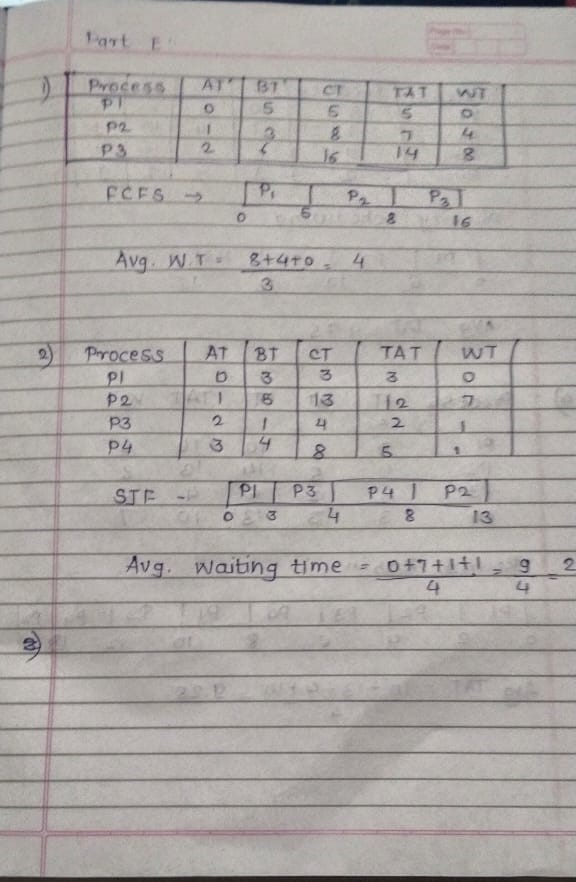 Part E
1)
Process AT BT CT TAT WT
P1 0 5 5 5 0
P2 1 3 8 7 4
P3 2 6 16 14 8
FCFS → P1 P2 P3
0 5 8 16
Avg. W.T = 8+4+0 = 4
3
2) Process AT BT CT TAT WT
P1 0 3 3 3 0
P2 1 5 13 12 7
P3 2 1 4 2 1
P4 3 4 8 5 1
SJF - P1 P3 P4 P2
0 3 4 8 13
Avg. Waiting time = 0+7+1+1 = 9 = 2
4 4
3)